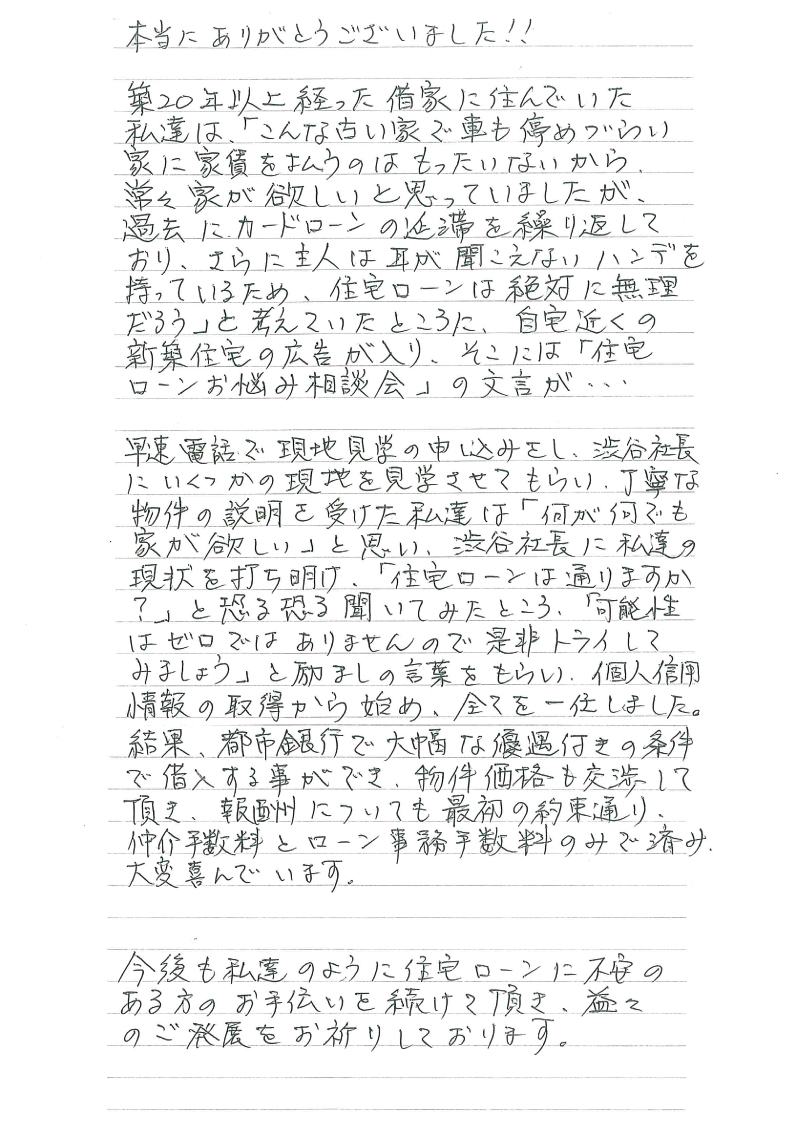 本当にありがとうございました!!
築20年以上経った借家に住んでいた
私達は、「こんな古い家で車も停めづらい
家に家賃を払うのはもったいないから、
常々家が欲しいと思っていましたが、
過去にカードローンの延滞を繰り返して
おり、さらに主人は耳が聞こえないハンデを
持っているため、住宅ローンは絶対に無理
だろう」と考えていたところに、自宅近くの
新築住宅の広告が入り、そこには「住宅
ローンお悩み相談会」の文言が・・・
早速電話で現地見学の申し込みをし、渋谷社長
にいくつかの現地を見学させてもらい、丁寧な
物件の説明を受けた私達は「何が何でも
家が欲しい」と思い、渋谷社長に私達の
現状を打ち明け、「住宅ローンは通りますか
?」と恐る恐る聞いてみたところ、「可能性
はゼロではありませんので是非トライして
みましょう」と励ましの言葉をもらい、個人信用
情報の取得から始め、全てを一任しました。
結果、都市銀行で大幅な優遇付きの条件
で借入する事ができ、物件価格も交渉して
頂き、報酬についても最初の約束通り、
仲介手数料とローン事務手数料のみで済み、
大変喜んでいます。
今後も私達のように住宅ローンに不安の
ある方のお手伝いを続けて頂き、益々
のご発展をお祈りしております。